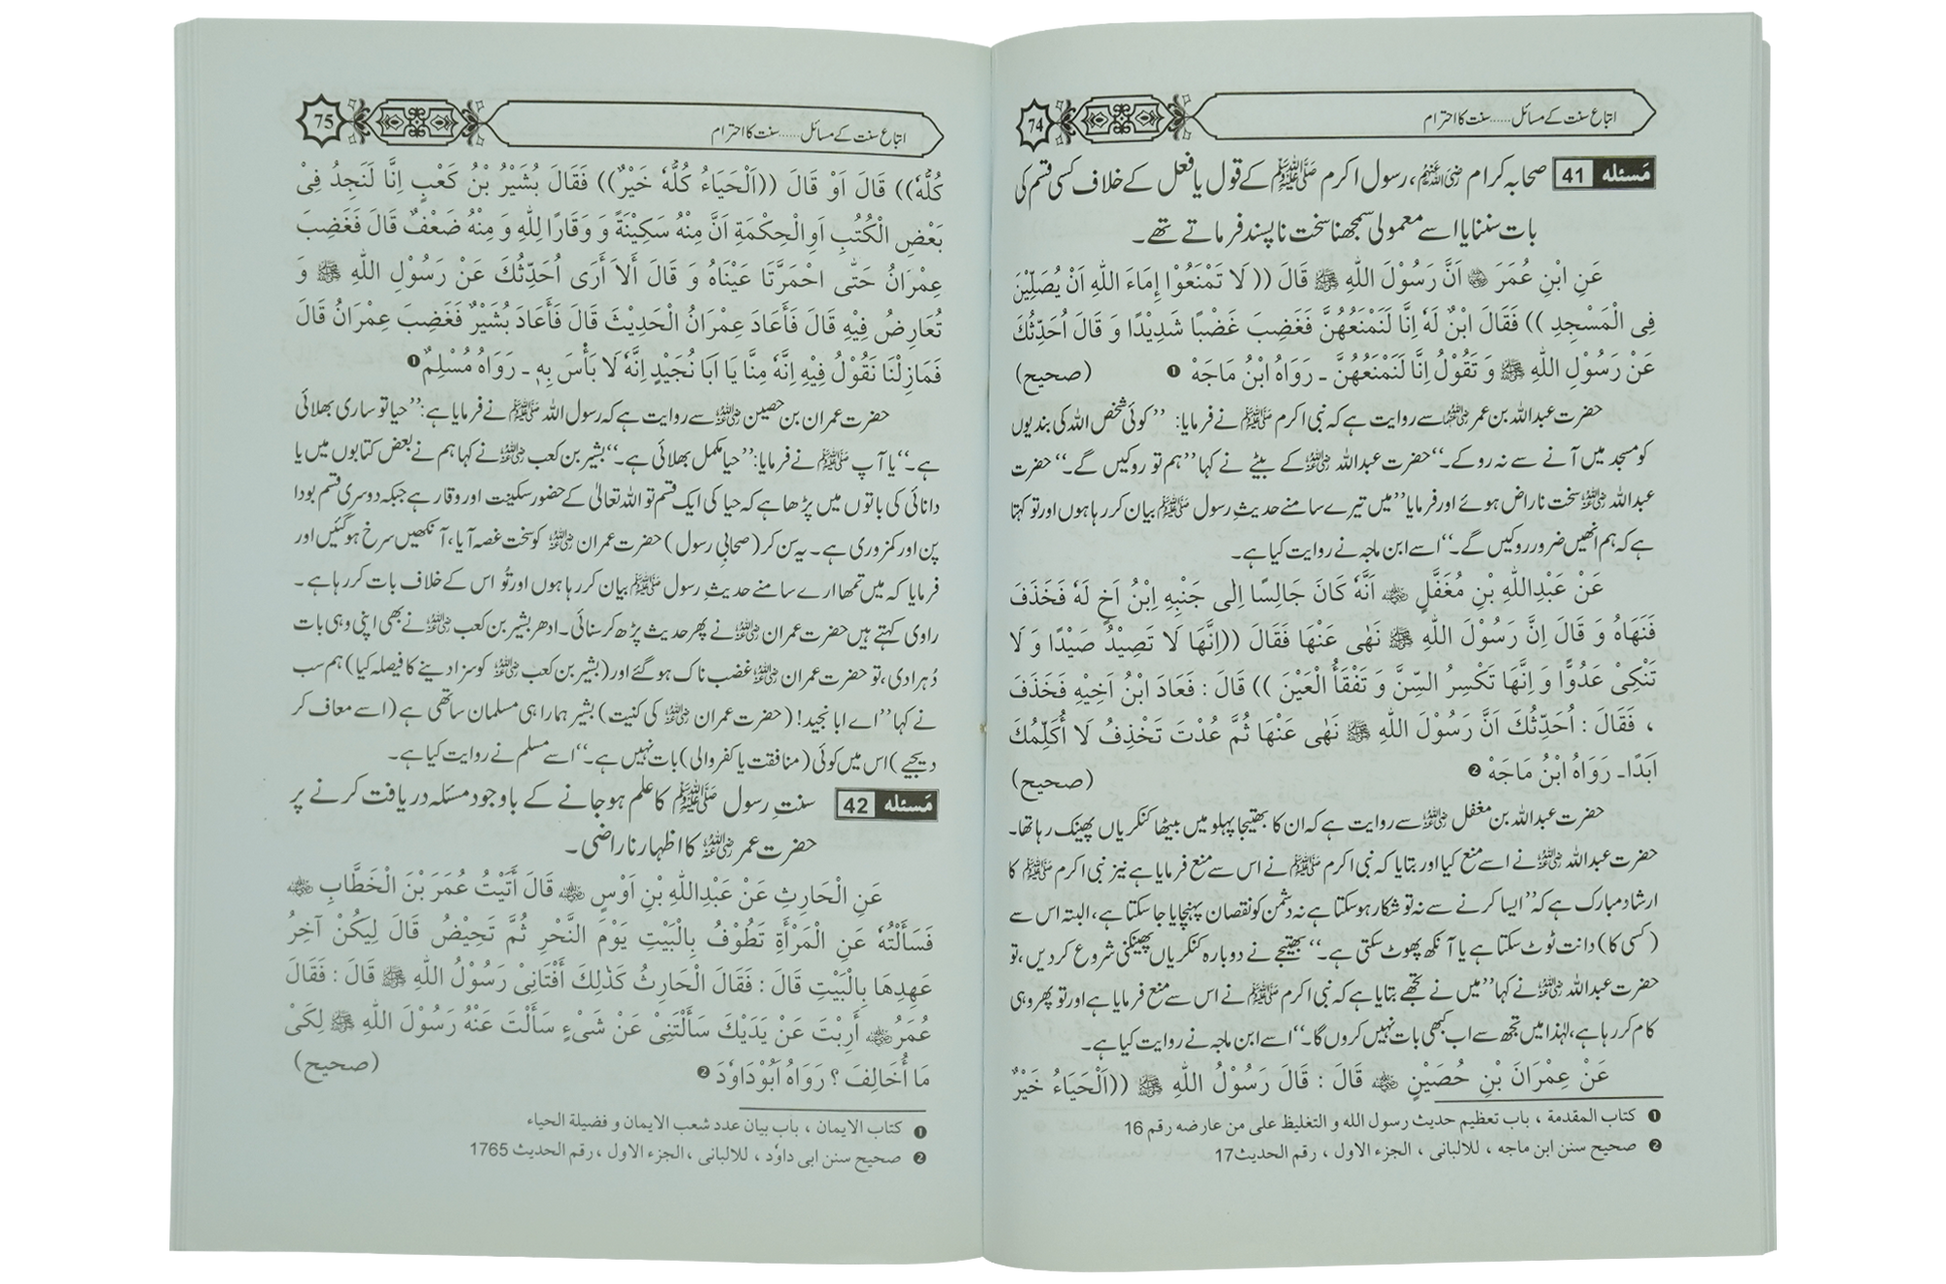 اتباع سنت کے مسائل......سنت کا احترام
74
مَسئلہ 41 صحابہ کرام رضی اللہ عنہم، رسول اکرم ﷺ کے قول یا فعل کے خلاف کسی قسم کی
بات سننا یا اسے معمولی سمجھنا سخت ناپسند فرماتے تھے۔
عَنِ ابْنِ عُمَرَ ؓ اَنَّ رَسُوْلَ اللّٰہِ ﷺ قَالَ (( لَا تَمْنَعُوْا إِمَاءَ اللّٰہِ اَنْ یُصَلِّیْنَ
فِی الْمَسْجِدِ )) فَقَالَ ابْنٌ لَہٗ اِنَّا لَنَمْنَعُھُنَّ فَغَضِبَ غَضْبًا شَدِیْدًا وَ قَالَ اُحَدِّثُكَ
عَنْ رَسُوْلِ اللّٰہِ ﷺ وَ تَقُوْلُ اِنَّا لَنَمْنَعُھُنَّ ۔ رَوَاہُ ابْنُ مَاجَہْ ❶ (صحیح)
حضرت عبداللہ بن عمر رضی اللہ عنہما سے روایت ہے کہ نبی اکرم ﷺ نے فرمایا: ’’کوئی شخص اللہ کی بندیوں
کو مسجد میں آنے سے نہ روکے۔‘‘ حضرت عبداللہ رضی اللہ عنہ کے بیٹے نے کہا ’’ہم تو روکیں گے۔‘‘ حضرت
عبداللہ رضی اللہ عنہ سخت ناراض ہوئے اور فرمایا ’’میں تیرے سامنے حدیثِ رسول ﷺ بیان کر رہا ہوں اور تو کہتا
ہے کہ ہم انھیں ضرور روکیں گے۔‘‘ اسے ابن ماجہ نے روایت کیا ہے۔
عَنْ عَبْدِاللّٰہِ بْنِ مُغَفَّلٍ ؓ اَنَّہٗ کَانَ جَالِسًا اِلٰی جَنْبِہٖ اِبْنُ اَخٍ لَہٗ فَخَذَفَ
فَنَھَاہُ وَ قَالَ اِنَّ رَسُوْلَ اللّٰہِ ﷺ نَھٰی عَنْھَا فَقَالَ ((اِنَّھَا لَا تَصِیْدُ صَیْدًا وَ لَا
تَنْکِیْ عَدُوًّا وَ اِنَّھَا تَکْسِرُ السِّنَّ وَ تَفْقَأُ الْعَیْنَ )) قَالَ : فَعَادَ ابْنُ اَخِیْہِ فَخَذَفَ
، فَقَالَ : اُحَدِّثُكَ اَنَّ رَسُوْلَ اللّٰہِ ﷺ نَھٰی عَنْھَا ثُمَّ عُدْتَ تَخْذِفُ لَا اُکَلِّمُكَ
اَبَدًا۔ رَوَاہُ ابْنُ مَاجَہْ ❷ (صحیح)
حضرت عبداللہ بن مغفل رضی اللہ عنہ سے روایت ہے کہ ان کا بھتیجا پہلو میں بیٹھا کنکریاں پھینک رہا تھا۔
حضرت عبداللہ رضی اللہ عنہ نے اسے منع کیا اور بتایا کہ نبی اکرم ﷺ نے اس سے منع فرمایا ہے نیز نبی اکرم ﷺ کا
ارشاد مبارک ہے کہ ’’ایسا کرنے سے نہ تو شکار ہوسکتا ہے نہ دشمن کو نقصان پہنچایا جا سکتا ہے، البتہ اس سے
(کسی کا) دانت ٹوٹ سکتا ہے یا آنکھ پھوٹ سکتی ہے۔‘‘ بھتیجے نے دوبارہ کنکریاں پھینکنی شروع کر دیں، تو
حضرت عبداللہ رضی اللہ عنہ نے کہا ’’میں نے تجھے بتایا ہے کہ نبی اکرم ﷺ نے اس سے منع فرمایا ہے اور تو پھر وہی
کام کر رہا ہے، لہٰذا میں تجھ سے اب کبھی بات نہیں کروں گا۔‘‘ اسے ابن ماجہ نے روایت کیا ہے۔
عَنْ عِمْرَانَ بْنِ حُصَیْنٍ ؓ قَالَ : قَالَ رَسُوْلُ اللّٰہِ ﷺ ((اَلْحَیَاءُ خَیْرٌ
❶ کتاب المقدمة ، باب تعظیم حدیث رسول الله و التغلیظ علی من عارضه رقم 16
❷ صحیح سنن ابن ماجه ، للالبانی ، الجزء الاول ، رقم الحدیث17
اتباع سنت کے مسائل......سنت کا احترام
75
کُلُّہٗ)) قَالَ اَوْ قَالَ ((اَلْحَیَاءُ کُلُّہٗ خَیْرٌ)) فَقَالَ بُشَیْرُ بْنُ کَعْبٍ اِنَّا لَنَجِدُ فِیْ
بَعْضِ الْکُتُبِ اَوِالْحِکْمَةِ اَنَّ مِنْہُ سَکِیْنَةً وَ وَقَارًا لِلّٰہِ وَ مِنْہُ ضَعْفٌ قَالَ فَغَضِبَ
عِمْرَانُ حَتّٰی احْمَرَّتَا عَیْنَاہُ وَ قَالَ أَلاَ أَرَی اُحَدِّثُكَ عَنْ رَسُوْلِ اللّٰہِ ﷺ وَ
تُعَارِضُ فِیْہِ قَالَ فَأَعَادَ عِمْرَانُ الْحَدِیْثَ قَالَ فَأَعَادَ بُشَیْرٌ فَغَضِبَ عِمْرَانُ قَالَ
فَمَازِلْنَا نَقُوْلُ فِیْہِ اِنَّہٗ مِنَّا یَا اَبَا نُجَیْدٍ اِنَّہٗ لَا بَأْسَ بِہٖ ۔ رَوَاہُ مُسْلِمٌ ❶
حضرت عمران بن حصین رضی اللہ عنہ سے روایت ہے کہ رسول اللہ ﷺ نے فرمایا ہے: ’’حیا تو ساری بھلائی
ہے۔‘‘ یا آپ ﷺ نے فرمایا: ’’حیا مکمل بھلائی ہے۔‘‘ بشیر بن کعب رضی اللہ عنہ نے کہا ہم نے بعض کتابوں میں یا
دانائی کی باتوں میں پڑھا ہے کہ حیا کی ایک قسم تو اللہ تعالیٰ کے حضور سکینت اور وقار ہے جبکہ دوسری قسم بودا
پن اور کمزوری ہے۔ یہ سن کر (صحابیِ رسول) حضرت عمران رضی اللہ عنہ کو سخت غصہ آیا، آنکھیں سرخ ہوگئیں اور
فرمایا کہ میں تمھارے سامنے حدیثِ رسول ﷺ بیان کر رہا ہوں اور تُو اس کے خلاف بات کر رہا ہے۔
راوی کہتے ہیں حضرت عمران رضی اللہ عنہ نے پھر حدیث پڑھ کر سنائی۔ ادھر بشیر بن کعب رضی اللہ عنہ نے بھی اپنی وہی بات
دُہرا دی، تو حضرت عمران رضی اللہ عنہ غضب ناک ہو گئے اور (بشیر بن کعب رضی اللہ عنہ کو سزا دینے کا فیصلہ کیا) ہم سب
نے کہا ’’اے ابا نجید! (حضرت عمران رضی اللہ عنہ کی کنیت) بشیر ہمارا ہی مسلمان ساتھی ہے (اسے معاف کر
دیجیے) اس میں کوئی (منافقت یا کفر والی) بات نہیں ہے۔‘‘ اسے مسلم نے روایت کیا ہے۔
مَسئلہ 42 سنتِ رسول ﷺ کا علم ہو جانے کے باوجود مسئلہ دریافت کرنے پر
حضرت عمر رضی اللہ عنہ کا اظہار ناراضی۔
عَنِ الْحَارِثِ عَنْ عَبْدِاللّٰہِ بْنِ اَوْسٍ ؓ قَالَ أَتَیْتُ عُمَرَ بْنَ الْخَطَّابِ ؓ
فَسَأَلْتُہٗ عَنِ الْمَرْأَةِ تَطُوْفُ بِالْبَیْتِ یَوْمَ النَّحْرِ ثُمَّ تَحِیْضُ قَالَ لِیَکُنْ آخِرُ
عَھِدِھَا بِالْبَیْتِ قَالَ : فَقَالَ الْحَارِثُ کَذٰلِكَ أَفْتَانِیْ رَسُوْلُ اللّٰہِ ﷺ قَالَ : فَقَالَ
عُمَرُ ؓ أَرِبْتَ عَنْ یَدَیْكَ سَأَلْتَنِیْ عَنْ شَیْءٍ سَأَلْتَ عَنْہُ رَسُوْلَ اللّٰہِ ﷺ لِکَیْ
مَا أُخَالِفَ ؟ رَوَاہُ اَبُوْدَاوٗدَ ❷ (صحیح)
❶ کتاب الایمان ، باب بیان عدد شعب الایمان و فضیلة الحیاء
❷ صحیح سنن ابی داوٗد ، للالبانی ، الجزء الاول ، رقم الحدیث 1765